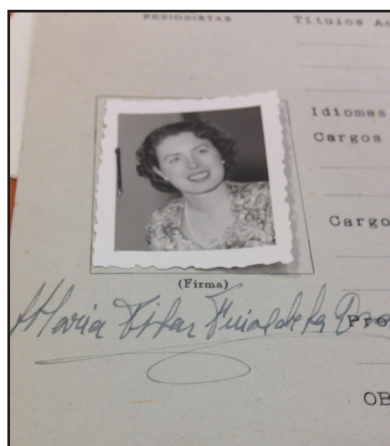 PERIODISTAS
Títulos Ac
Idiomas
Cargos
Cargo
(Firma)
Maria Pilar
Pro
OB